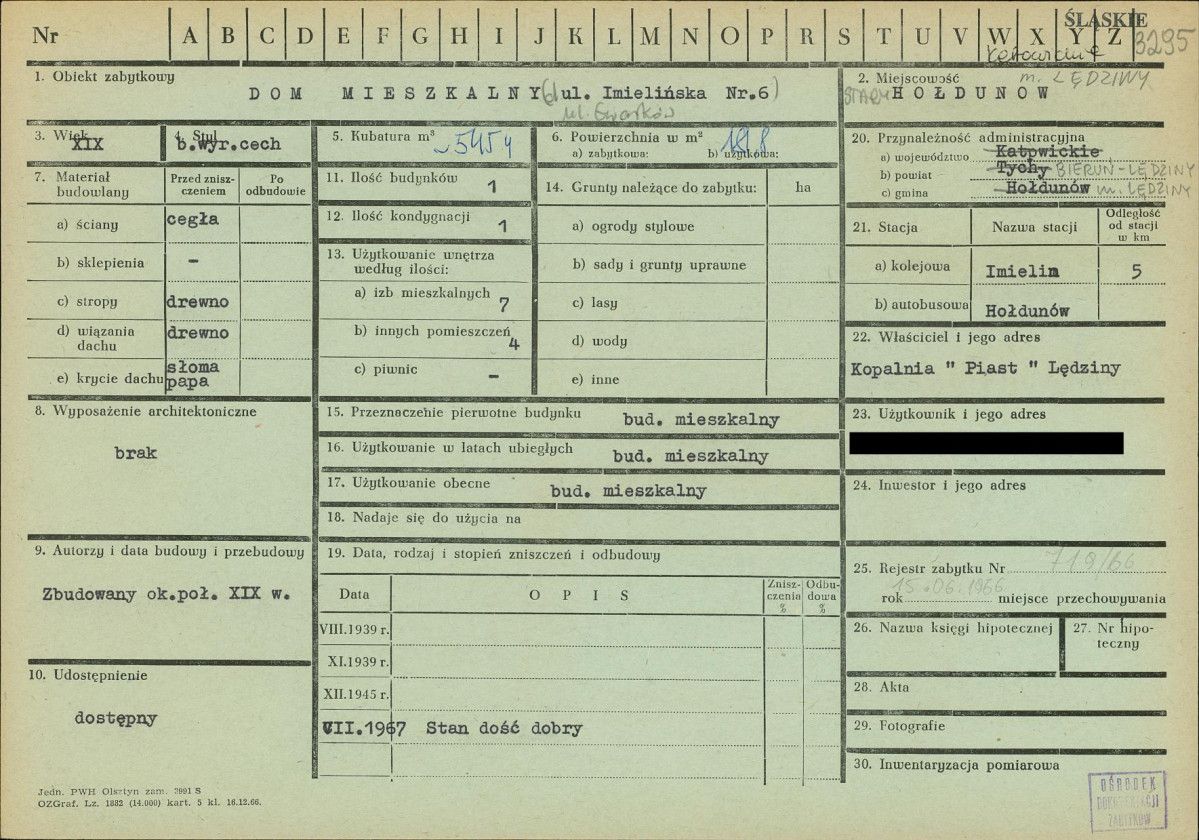 Nr A B C D E F G H I J K L M N O P R S T U V W X Y Z
ŚLĄSKIE
3295
1. Obiekt zabytkowy
DOM MIESZKALNY (d. ul. Imielińska Nr.6)
ul. Gwarków
2. Miejscowość m. LĘDZINY
STARY HOŁDUNÓW
3. Wiek
XIX
4. Styl
b.wyr.cech
5. Kubatura m³
~545
6. Powierzchnia w m²
a) zabytkowa: b) użytkowa:
7. Materiał budowlany
Przed zniszczeniem
Po odbudowie
a) ściany cegła
b) sklepienia -
c) stropy drewno
d) wiązania dachu drewno
e) krycie dachu słoma papa
8. Wyposażenie architektoniczne
brak
9. Autorzy i data budowy i przebudowy
Zbudowany ok.poł. XIX w.
10. Udostępnienie
dostępny
11. Ilość budynków 1
12. Ilość kondygnacji 1
13. Użytkowanie wnętrza według ilości:
a) izb mieszkalnych 7
b) innych pomieszczeń 4
c) piwnic -
14. Grunty należące do zabytku: ha
a) ogrody stylowe
b) sady i grunty uprawne
c) lasy
d) wody
e) inne
15. Przeznaczenie pierwotne budynku bud. mieszkalny
16. Użytkowanie w latach ubiegłych bud. mieszkalny
17. Użytkowanie obecne bud. mieszkalny
18. Nadaje się do użycia na
19. Data, rodzaj i stopień zniszczeń i odbudowy
Data OPIS Zniszczenia % Odbudowa %
VIII.1939 r.
XI.1939 r.
XII.1945 r.
VII.1967 Stan dość dobry
20. Przynależność administracyjna
a) województwo Katowickie
b) powiat Tychy BIERUŃ-LĘDZINY
c) gmina Hołdunów m. LĘDZINY
21. Stacja Nazwa stacji Odległość od stacji w km
a) kolejowa Imielin 5
b) autobusowa Hołdunów
22. Właściciel i jego adres
Kopalnia " Piast " Lędziny
23. Użytkownik i jego adres
24. Inwestor i jego adres
25. Rejestr zabytku Nr 719/66
rok 15.06.1966 miejsce przechowywania
26. Nazwa księgi hipotecznej
27. Nr hipoteczny
28. Akta
29. Fotografie
30. Inwentaryzacja pomiarowa
Jedn. PWH Olsztyn zam. 2991 S
OZGraf. Lz. 1882 (14.000) kart. 5 kl. 16.12.66.
OŚRODEK
DOKUMENTACJI
ZABYTKÓW